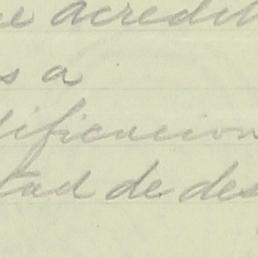 e acredit
s a
dificacion
tad de des